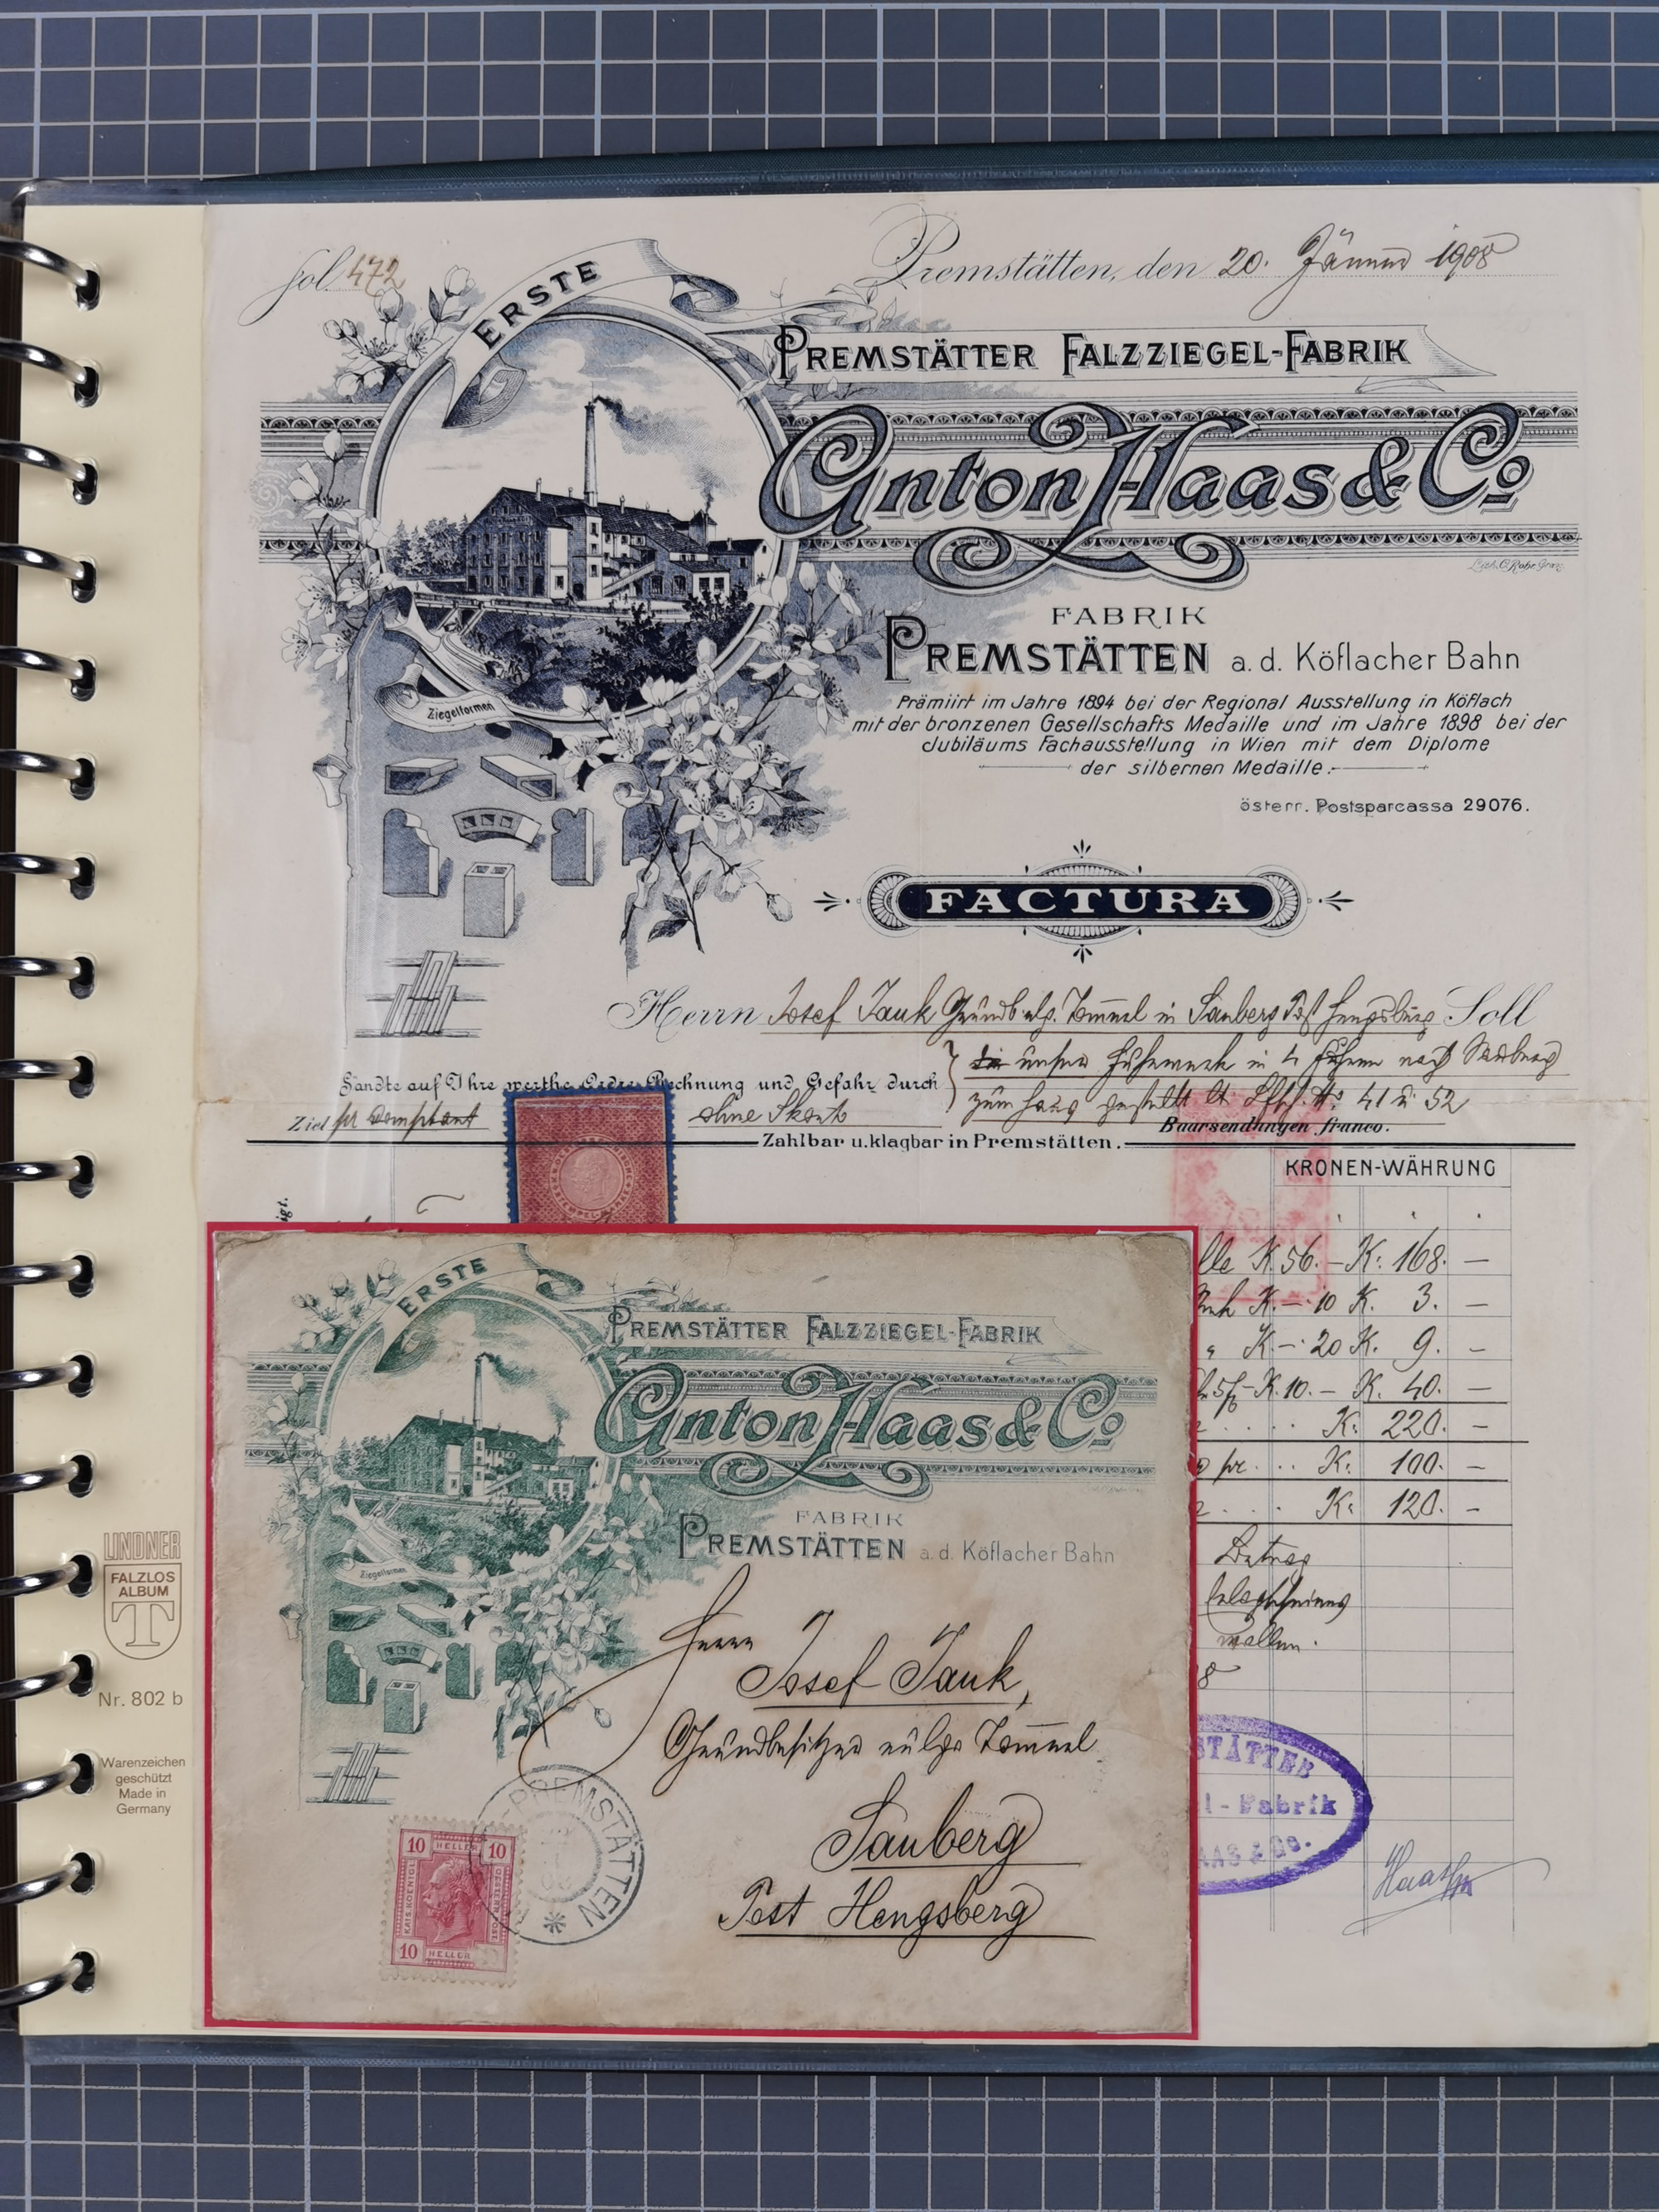 Fol. 472
Premstätten, den 20. Jänner 1908
ERSTE
PREMSTÄTTER FALZZIEGEL-FABRIK
Anton Haas & Co
Lith. C. Rohr Graz
FABRIK
PREMSTÄTTEN a. d. Köflacher Bahn
Prämiirt im Jahre 1894 bei der Regional Ausstellung in Köflach
mit der bronzenen Gesellschafts Medaille und im Jahre 1898 bei der
Jubiläums Fachausstellung in Wien mit dem Diplome
der silbernen Medaille.
Ziegelformen
österr. Postsparcassa 29076.
FACTURA
Herrn Josef Jauk Grundb. vulgo Tommel in Sauberg Post Hengsberg Soll
unser Fuhrwerk in 4 Fuhren nach Sauberg
Sandte auf Ihre werthe Ordre Rechnung und Gefahr durch
zum Haus gestellt lt. No 41 u. 52
Ziel pr comptant ohne Skonto
Baarsendungen franco.
Zahlbar u. klagbar in Premstätten.
KRONEN-WÄHRUNG
K. 56. – K. 168. –
K. – . 10 K. 3. –
" K. – . 20 K. 9. –
K. 10. – K. 40. –
K. 220. –
pr. K. 100. –
K. 120. –
Betrag
wollen.
8
STÄTTER
l - Fabrik
AAS & Co.
Haas
ERSTE
PREMSTÄTTER FALZZIEGEL-FABRIK
Anton Haas & Co
FABRIK
PREMSTÄTTEN a. d. Köflacher Bahn
Ziegelformen
Herrn
Josef Jauk,
Grundbesitzer vulgo Tommel
Sauberg
Post Hengsberg
PREMSTÄTTEN
10 HELLER 10
KAIS. KOENIGL.
OESTERR. POST
10 HELLER
LINDNER
FALZLOS
ALBUM
T
Nr. 802 b
Warenzeichen
geschützt
Made in
Germany